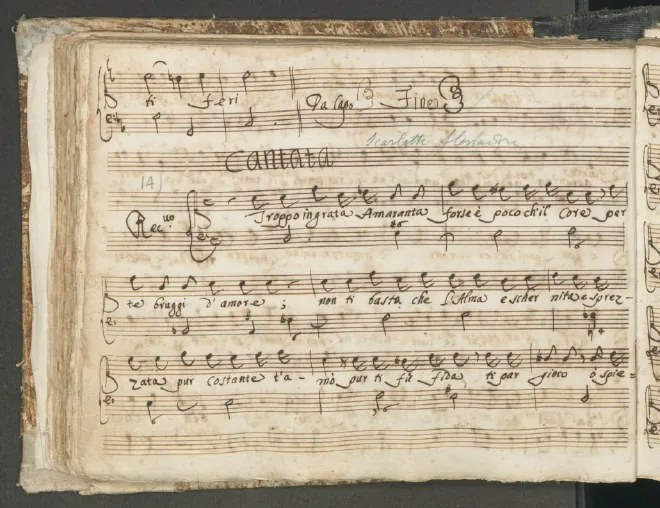 ti feri Da Capo Fine
Cantata Scarlatti Alessandro
14)
Rec.uo Troppo ingrata Amaranta forse è poco ch'il Core per
te bruggi d'amore; non ti basta che l'Alma e scher nita e sprez-
zata pur costante t'a- mò pur ti fù fida ti par gioco o spie=